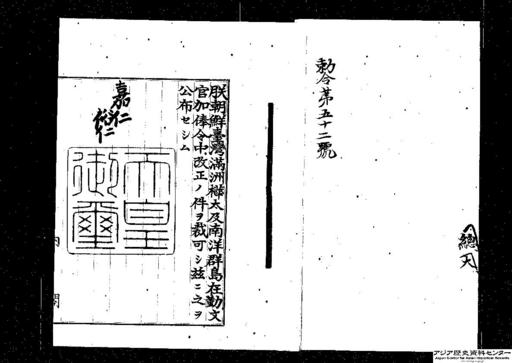 勅令第五十二號
朕朝鮮臺灣滿洲樺太及南洋群島在勤文
官加俸令中改正ノ件ヲ裁可シ茲ニ之ヲ
公布セシム
嘉仁
裕仁
天皇
御璽
内閣
アジア歴史資料センター
Japan Center for Asian Historical Records